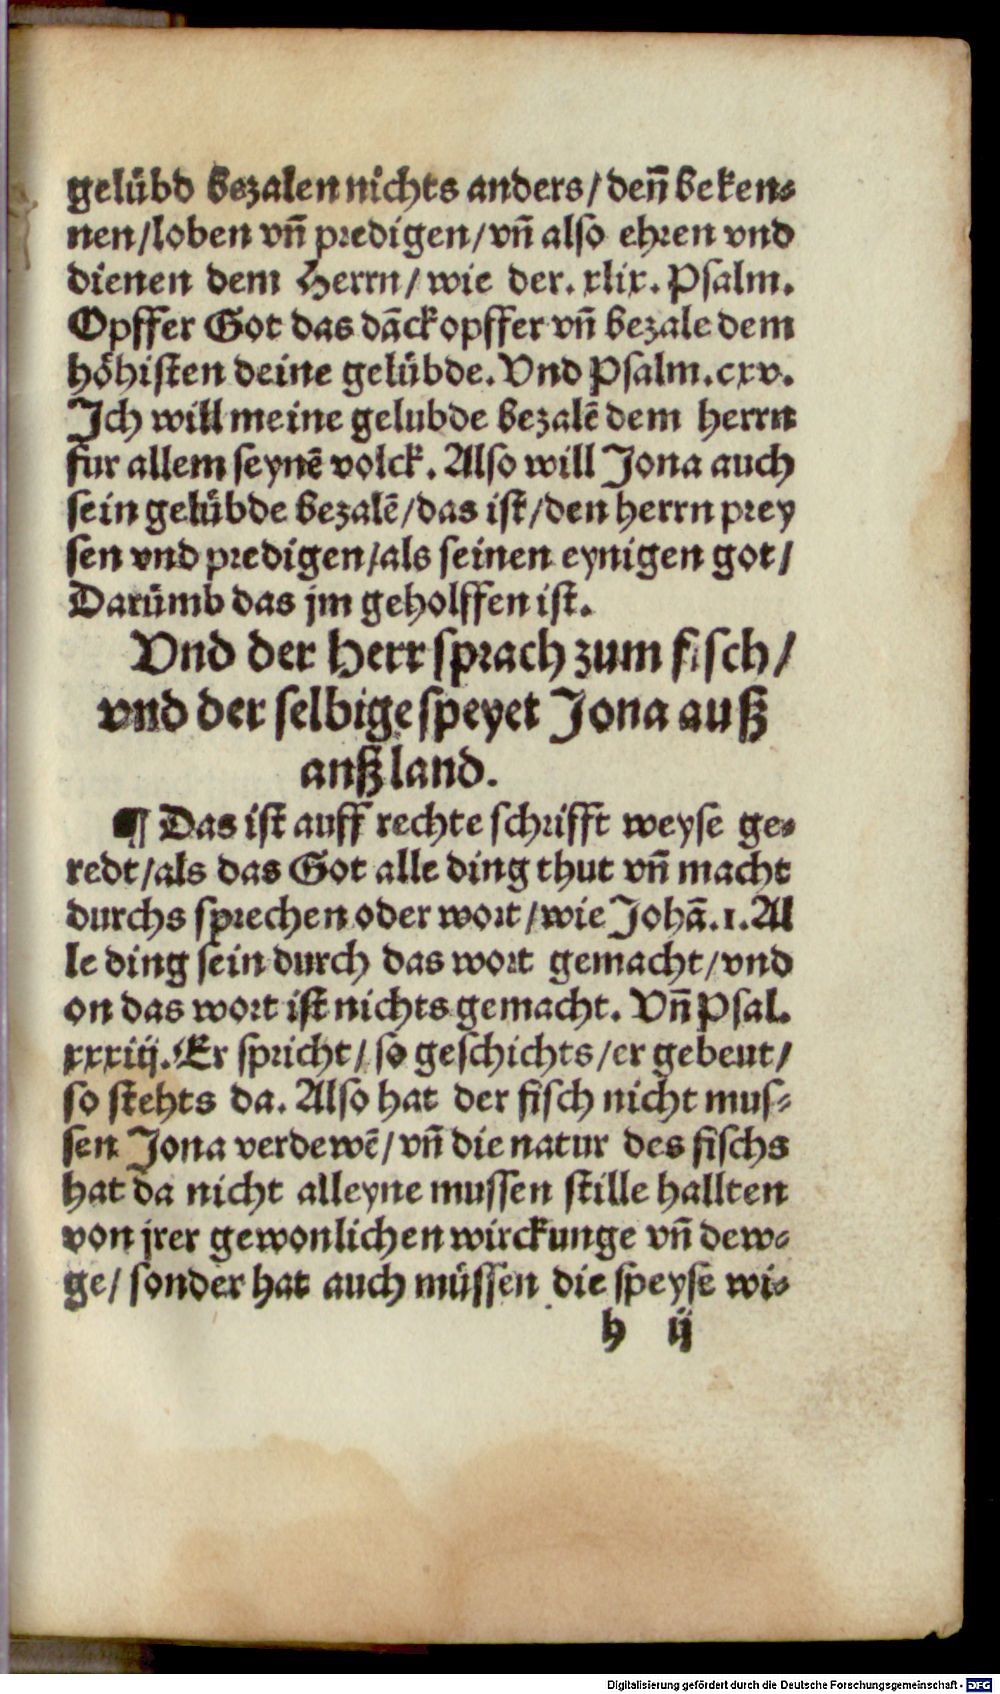 gelübd bezalen nichts anders/ deñ beken-
nen/ loben vñ predigen/ vñ also ehren vnd
dienen dem Herrn/ wie der. xlix. Psalm.
Opffer Got das dāck opffer vñ bezale dem
höhisten deine gelübde. Vnd Psalm. cxv.
Ich will meine gelubde bezalē dem herrn
fur allem seynē volck. Also will Jona auch
sein gelübde bezalē/ das ist/ den herrn prey
sen vnd predigen/ als seinen eynigen got/
Darümb das jm geholffen ist.
Vnd der Herr sprach zum fisch/
vnd der selbige speyet Jona auß
anß land.
¶ Das ist auff rechte schrifft weyse ge-
redt/ als das Got alle ding thut vñ macht
durchs sprechen oder wort/ wie Johā. 1. Al
le ding sein durch das wort gemacht/ vnd
on das wort ist nichts gemacht. Vñ Psal.
xxxiij. Er spricht/ so geschichts/ er gebeut/
so stehts da. Also hat der fisch nicht mus-
sen Jona verdewē/ vñ die natur des fischs
hat da nicht alleyne mussen stille hallten
von jrer gewonlichen wirckunge vñ dew-
ge/ sonder hat auch müssen die speyse wi-
h ij
Digitalisierung gefördert durch die Deutsche Forschungsgemeinschaft - DFG